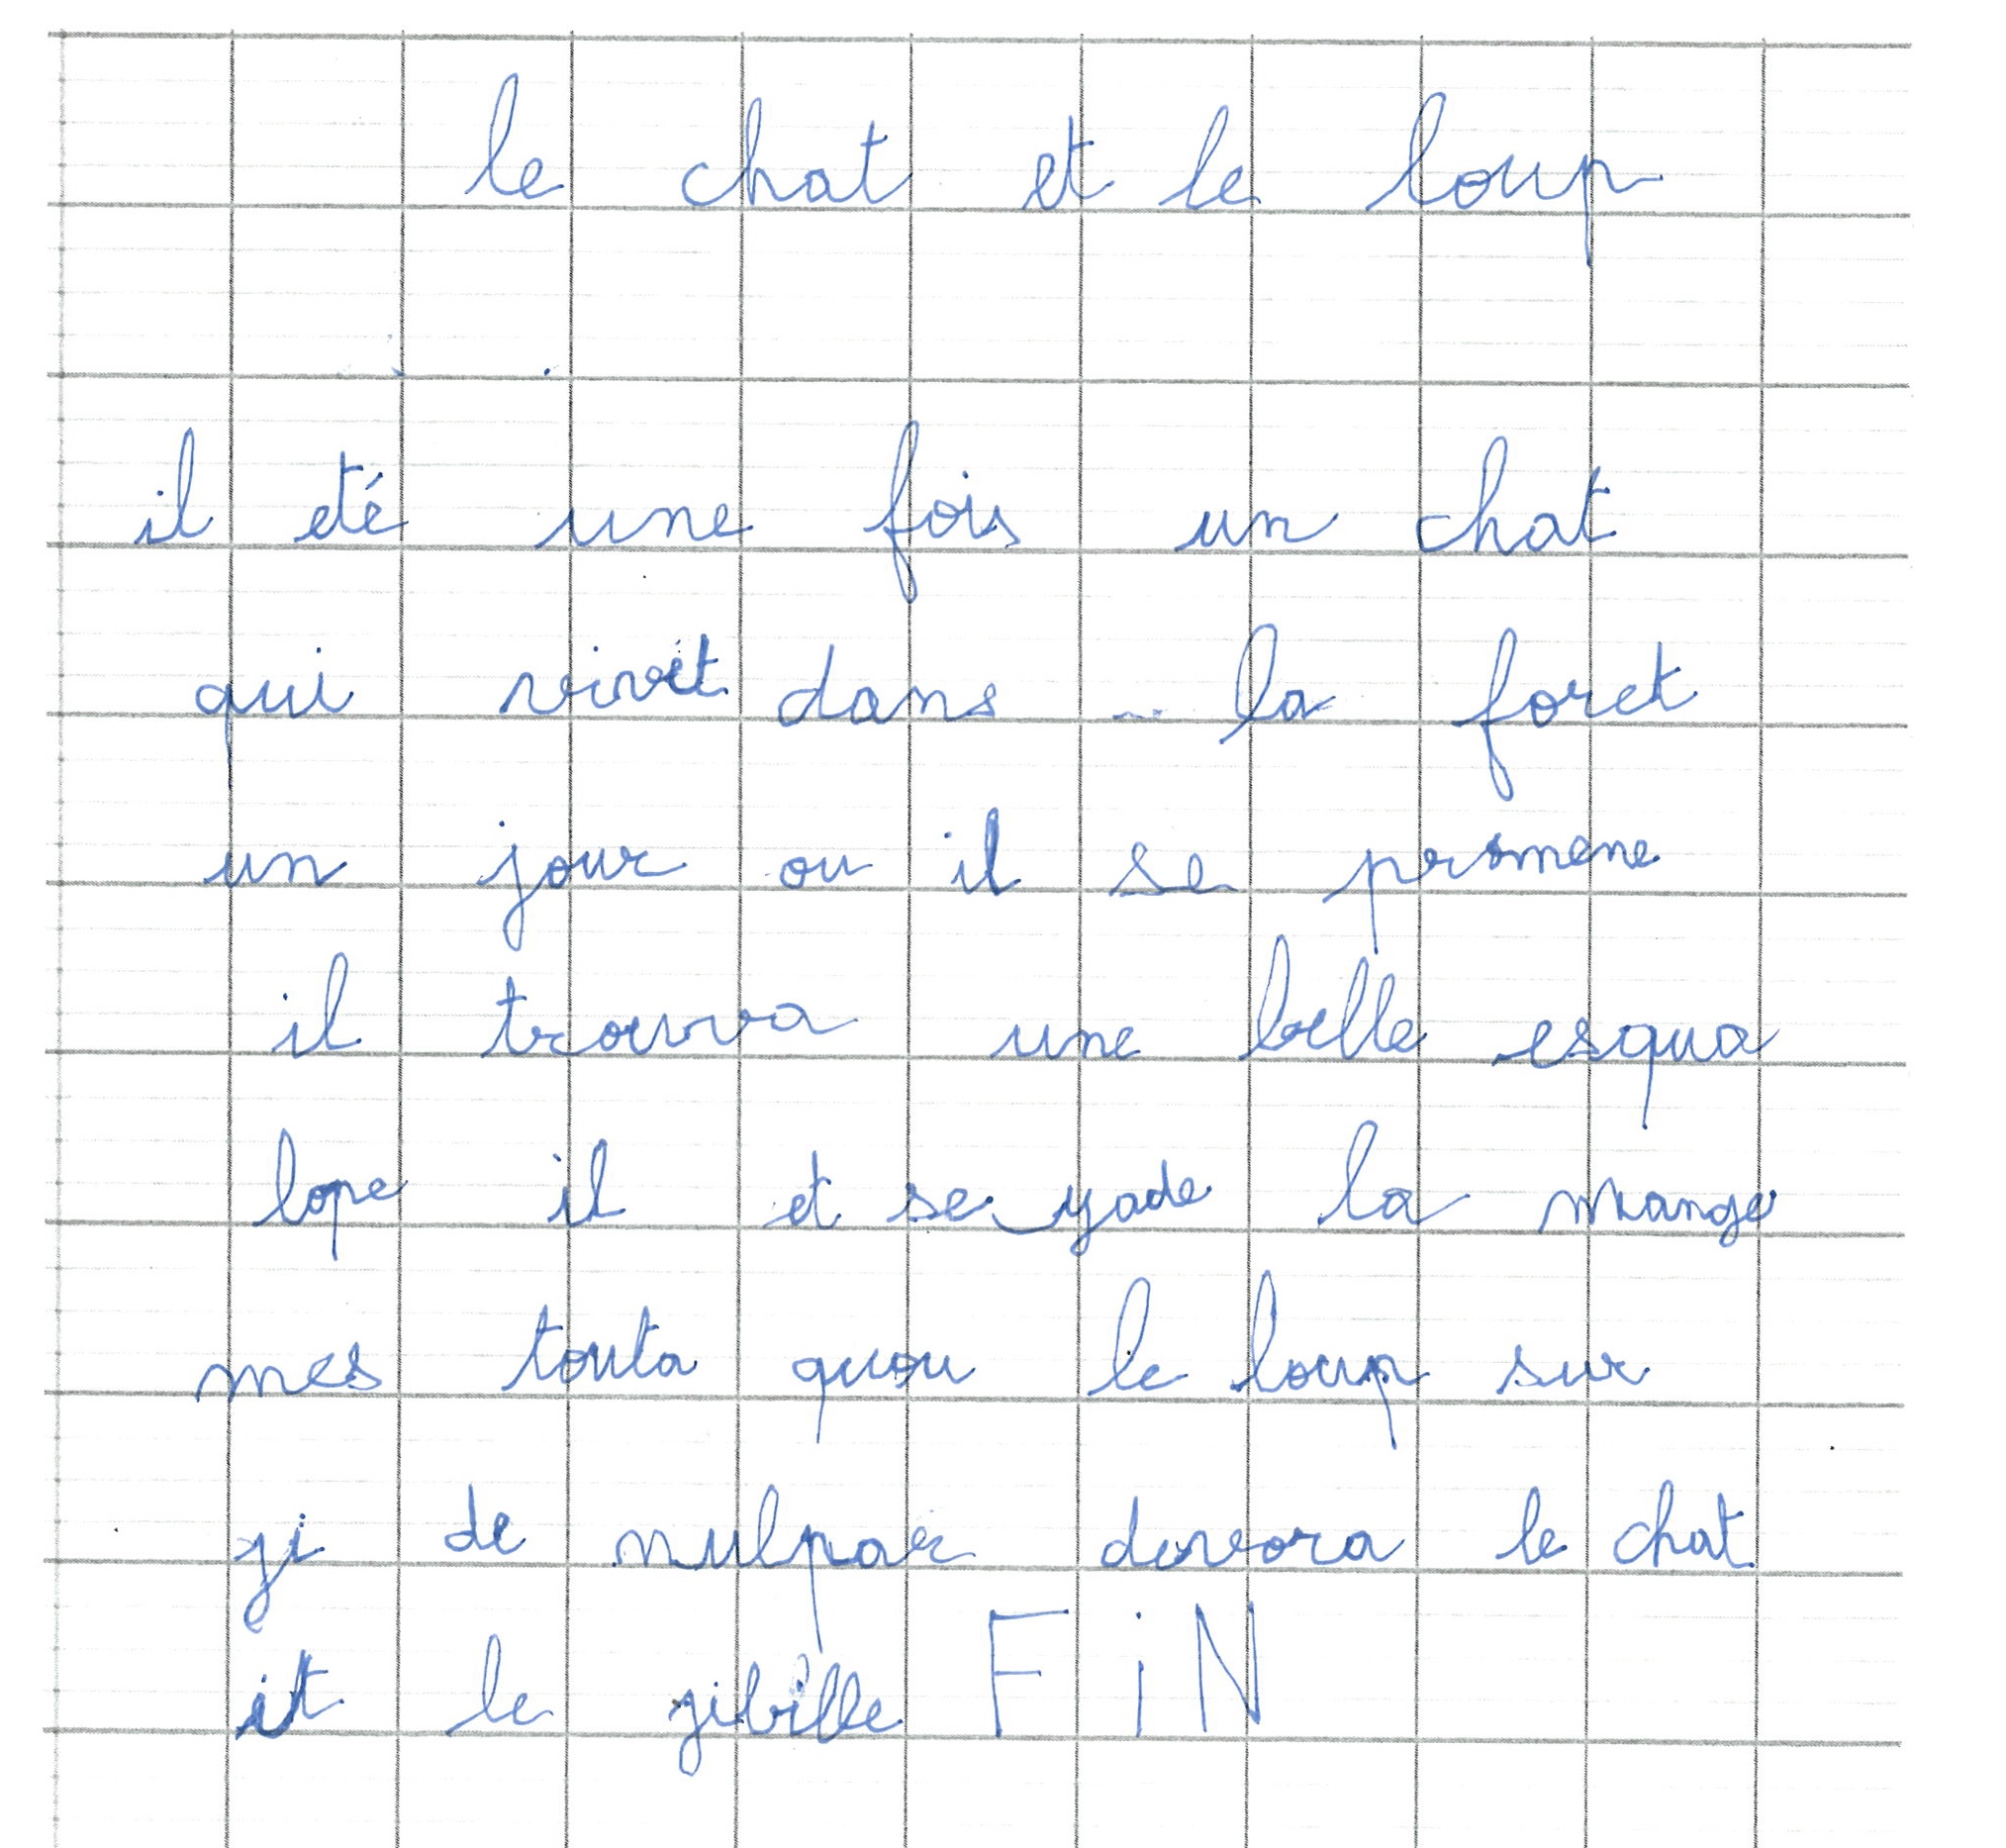 le chat et le loup
il eté une fois un chat
qui vivet dans la foret
un jour ou il se promene
il trouva une belle esqua
lope il et seyade la mange
mes touta quou le loup sur
ji de nulpar devora le chat
it le jibille FiN